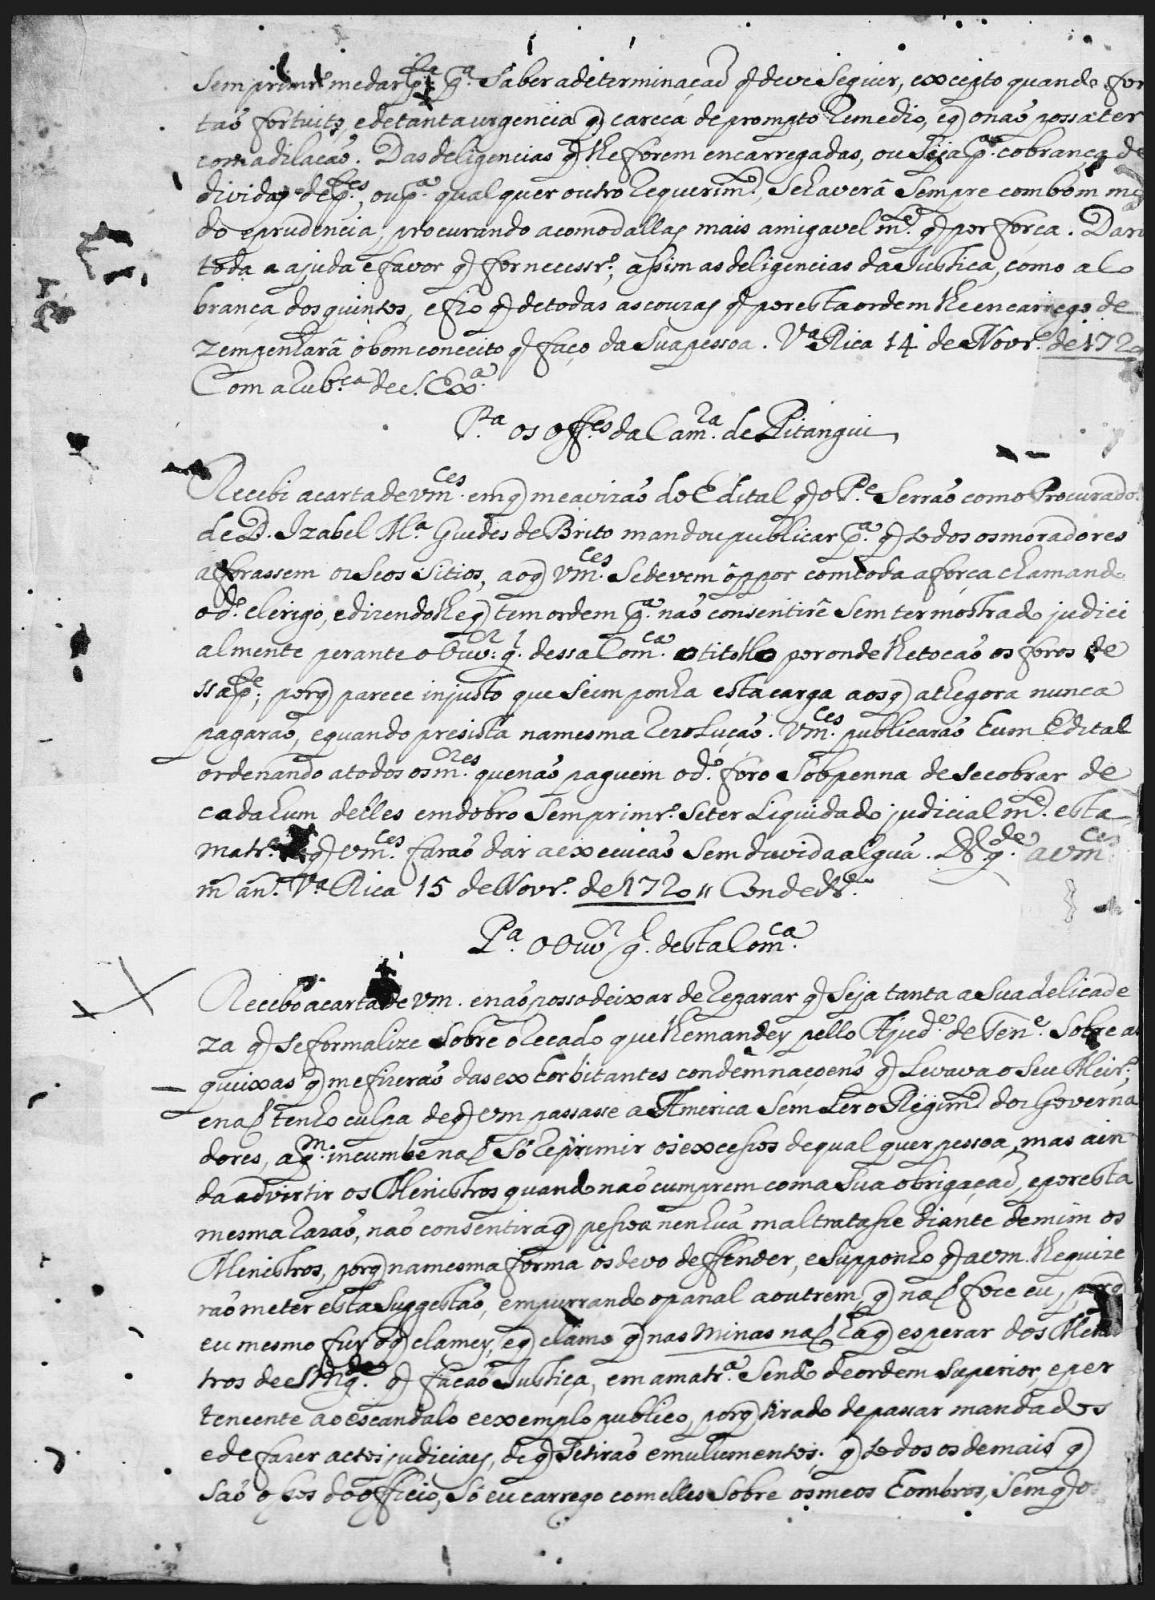 sem primr.º me dar p.te p.ª Saber a determinaçaõ q̃ deve Seguir, excepto quando for
taõ fortuito, e de tanta urgencia q̃ careça de prompto Remedio, e q̃ o naõ possa ter
com a dilaçaõ. Das deligencias q̃ lhe forem encarregadas, ou Seja p.ª cobrança de
dividas de p.tes, ou p.ª qualquer outro requerim.to, Se haverâ Sempre com bom mo
do e prudencia, procurando acomodallas mais amigavelm.te q̃ por força. Dará
toda a ajuda e favor q̃ for necessr.º, assim as deligencias da Justiça, como a co
brança dos quintos, e fio q̃ de todas as couzas q̃ por esta ordem lhe encarrego de
zempenharâ o bom conceito q̃ faço da Sua pessoa. V.ª Rica 14 de Novr.º de 1720
Com a rub.ca de S. Ex.ª
P.ª os off.es da Cam.ra de Pitangui
Recebi a carta de vm.ces em q̃ me avizaõ do Edital q̃ o P.e Serraõ como Procurador
de D. Izabel M.ª Guedes de Brito mandou publicar p.ª q̃ todos os moradores
aforassem os Seos Sitios, ao q̃ Vm.ces Se devem oppor com toda a força chamando
o d.º clerigo, e dizendolhe q̃ tem ordem p.ª naõ consentirẽ Sem ter mostrado judici
almente perante o Ouv.or g.l dessa Com.ca o titolo por onde lhe tocaõ os foros de
ssa p.te; porq̃ parece injusto que Se imponha esta carga aos q̃ athegora nunca
pagaraõ, e quando presista na mesma rezoluçaõ. Vm.ces publicaraõ hum Edital
ordenando a todos os m.ores que naõ paguem o d.º foro Sobpenna de se cobrar de
cada hum delles em dobro Sem primr.º Se ter Liquidado judicialm.te esta
matr.ª q̃ vm.ces faraõ dar a execuçaõ Sem duvida algũa. D.s g.de a vm.ces
m.s an.s V.ª Rica 15 de Novr.º de 1720 // Conde D.
P.ª o Ouv.or g.l desta Com.ca
Recebo a carta de vm. e naõ posso deixar de reparar q̃ Seja tanta a Sua delicade
za q̃ Se formalize Sobre o recado que lhe mandey pello Ajud.e de Ten.e Sobre as
queixas q̃ me fizeraõ das exhorbitantes condemnaçoens q̃ Levava o Seu Meir.º,
e naõ tenho culpa de q̃ vm passasse a America Sem Ler o Regim.to dos Governa
dores, a q.m incumbe naõ Só reprimir os excessos de qualquer pessoa, mas ain
da advirtir os Menistros quando naõ cumprem com a Sua obrigaçaõ, e por esta
mesma razaõ, naõ consentira q̃ pessoa nenhuã maltratasse diante de mim os
Menistros, porq̃ na mesma forma os devo deffender, e Supponho q̃ a vm. lhe quize
raõ meter esta Suggestaõ, empurrando o panal a outrem, q̃ naõ foce eu, porq̃
eu mesmo fuy o q̃ clamey, e q̃ clamo q̃ nas Minas naõ ha q̃ esperar dos Menis
tros de S. Mg.de q̃ façaõ Justiça, em a matr.ª Sendo de ordem Superior, e per
tencente ao escandalo e exemplo publico, porq̃ tirado de passar mandados
e de fazer actos judiciaes, de q̃ Se tiraõ emulumentos; q̃ todos os demais q̃
Saõ do officio, Só eu carrego com elles Sobre os meos hombros, Sem q̃ o